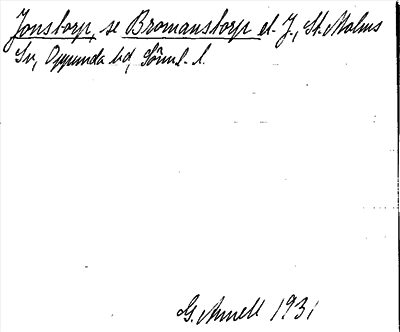 Jonstorp, se Bromanstorp el. J., St. Malms
Sn, Oppunda hd, Sörml. l.
G. Arnell 1931